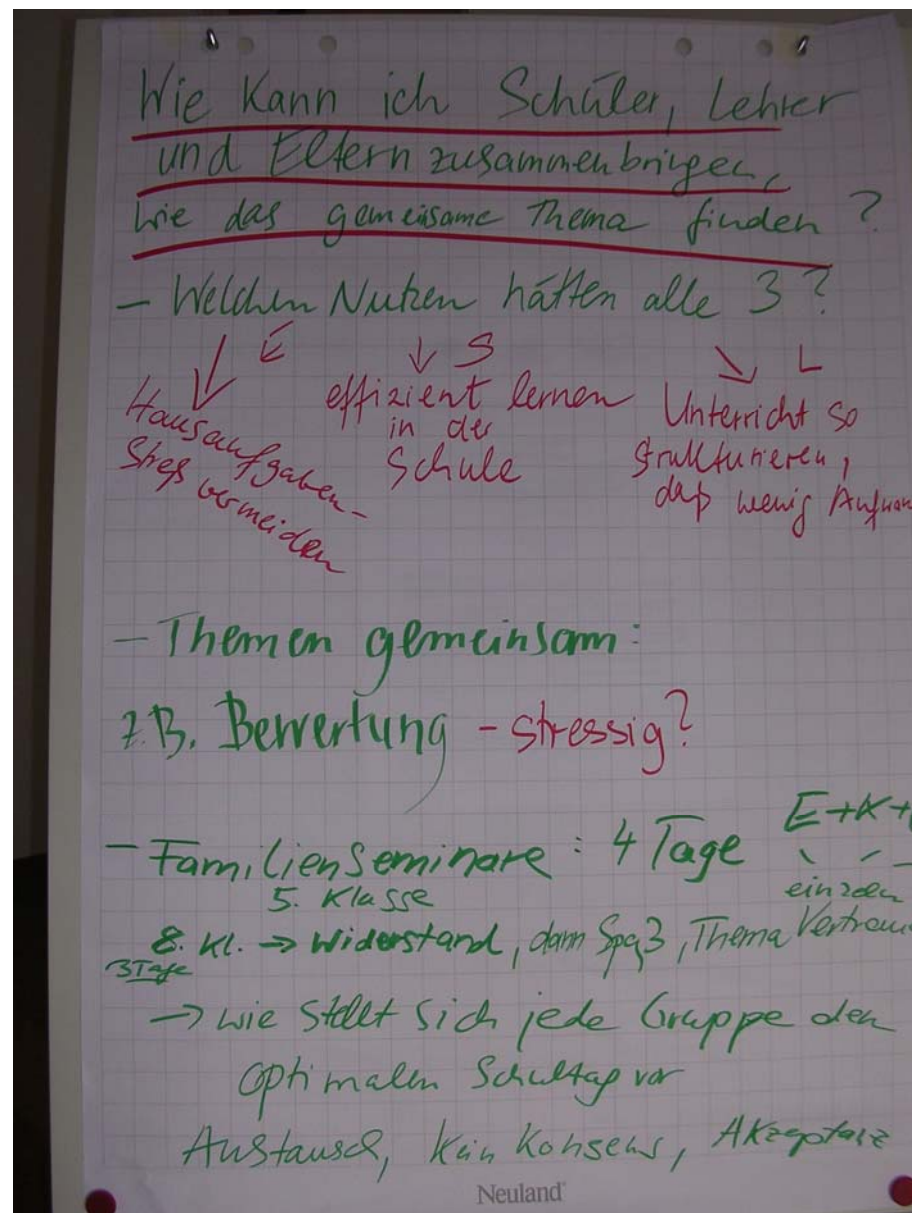 Wie kann ich Schüler, Lehrer
und Eltern zusammenbringen,
wie das gemeinsame Thema finden?
- Welchen Nutzen hätten alle 3?
↙ E ↓ S ↘ L
Hausaufgaben-
Streß vermeiden
effizient lernen
in der
Schule
Unterricht so
strukturieren,
daß wenig
- Themen gemeinsam:
z.B. Bewertung - stressig?
- Familienseminare: 4 Tage E+K+
einzeln
5. Klasse
8. Kl. → Widerstand, dann Spaß, Thema
3 Tage
→ wie stellt sich jede Gruppe den
optimalen Schultag vor
Austausch, kein Konsens, Akzeptanz
Neuland